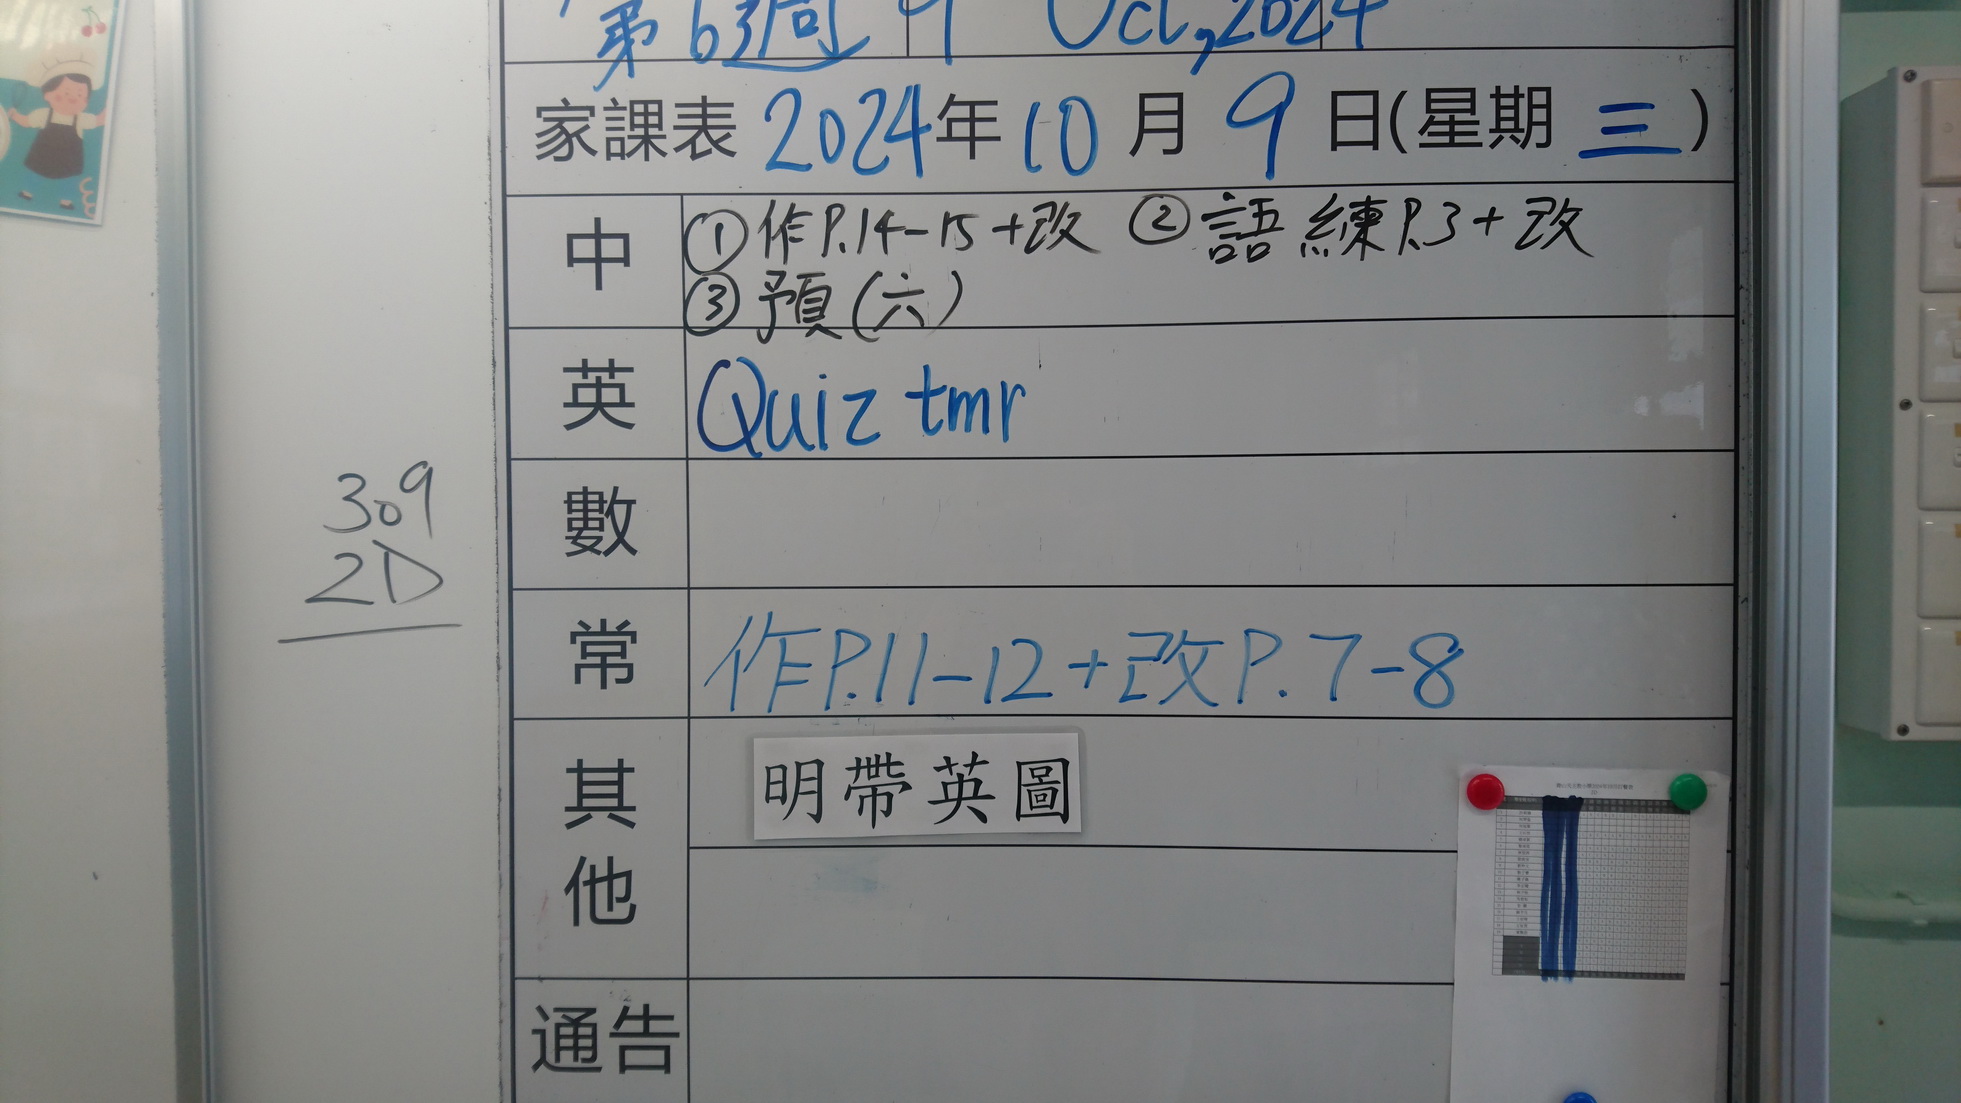 第6週 9 Oct, 2024
家課表 2024年 10 月 9 日(星期 三)
中 ①作P.14-15+改 ②語練P.3+改
③預(六)
英 Quiz tmr
數
309
2D
常 作P.11-12+改P.7-8
其他 明帶英圖
通告